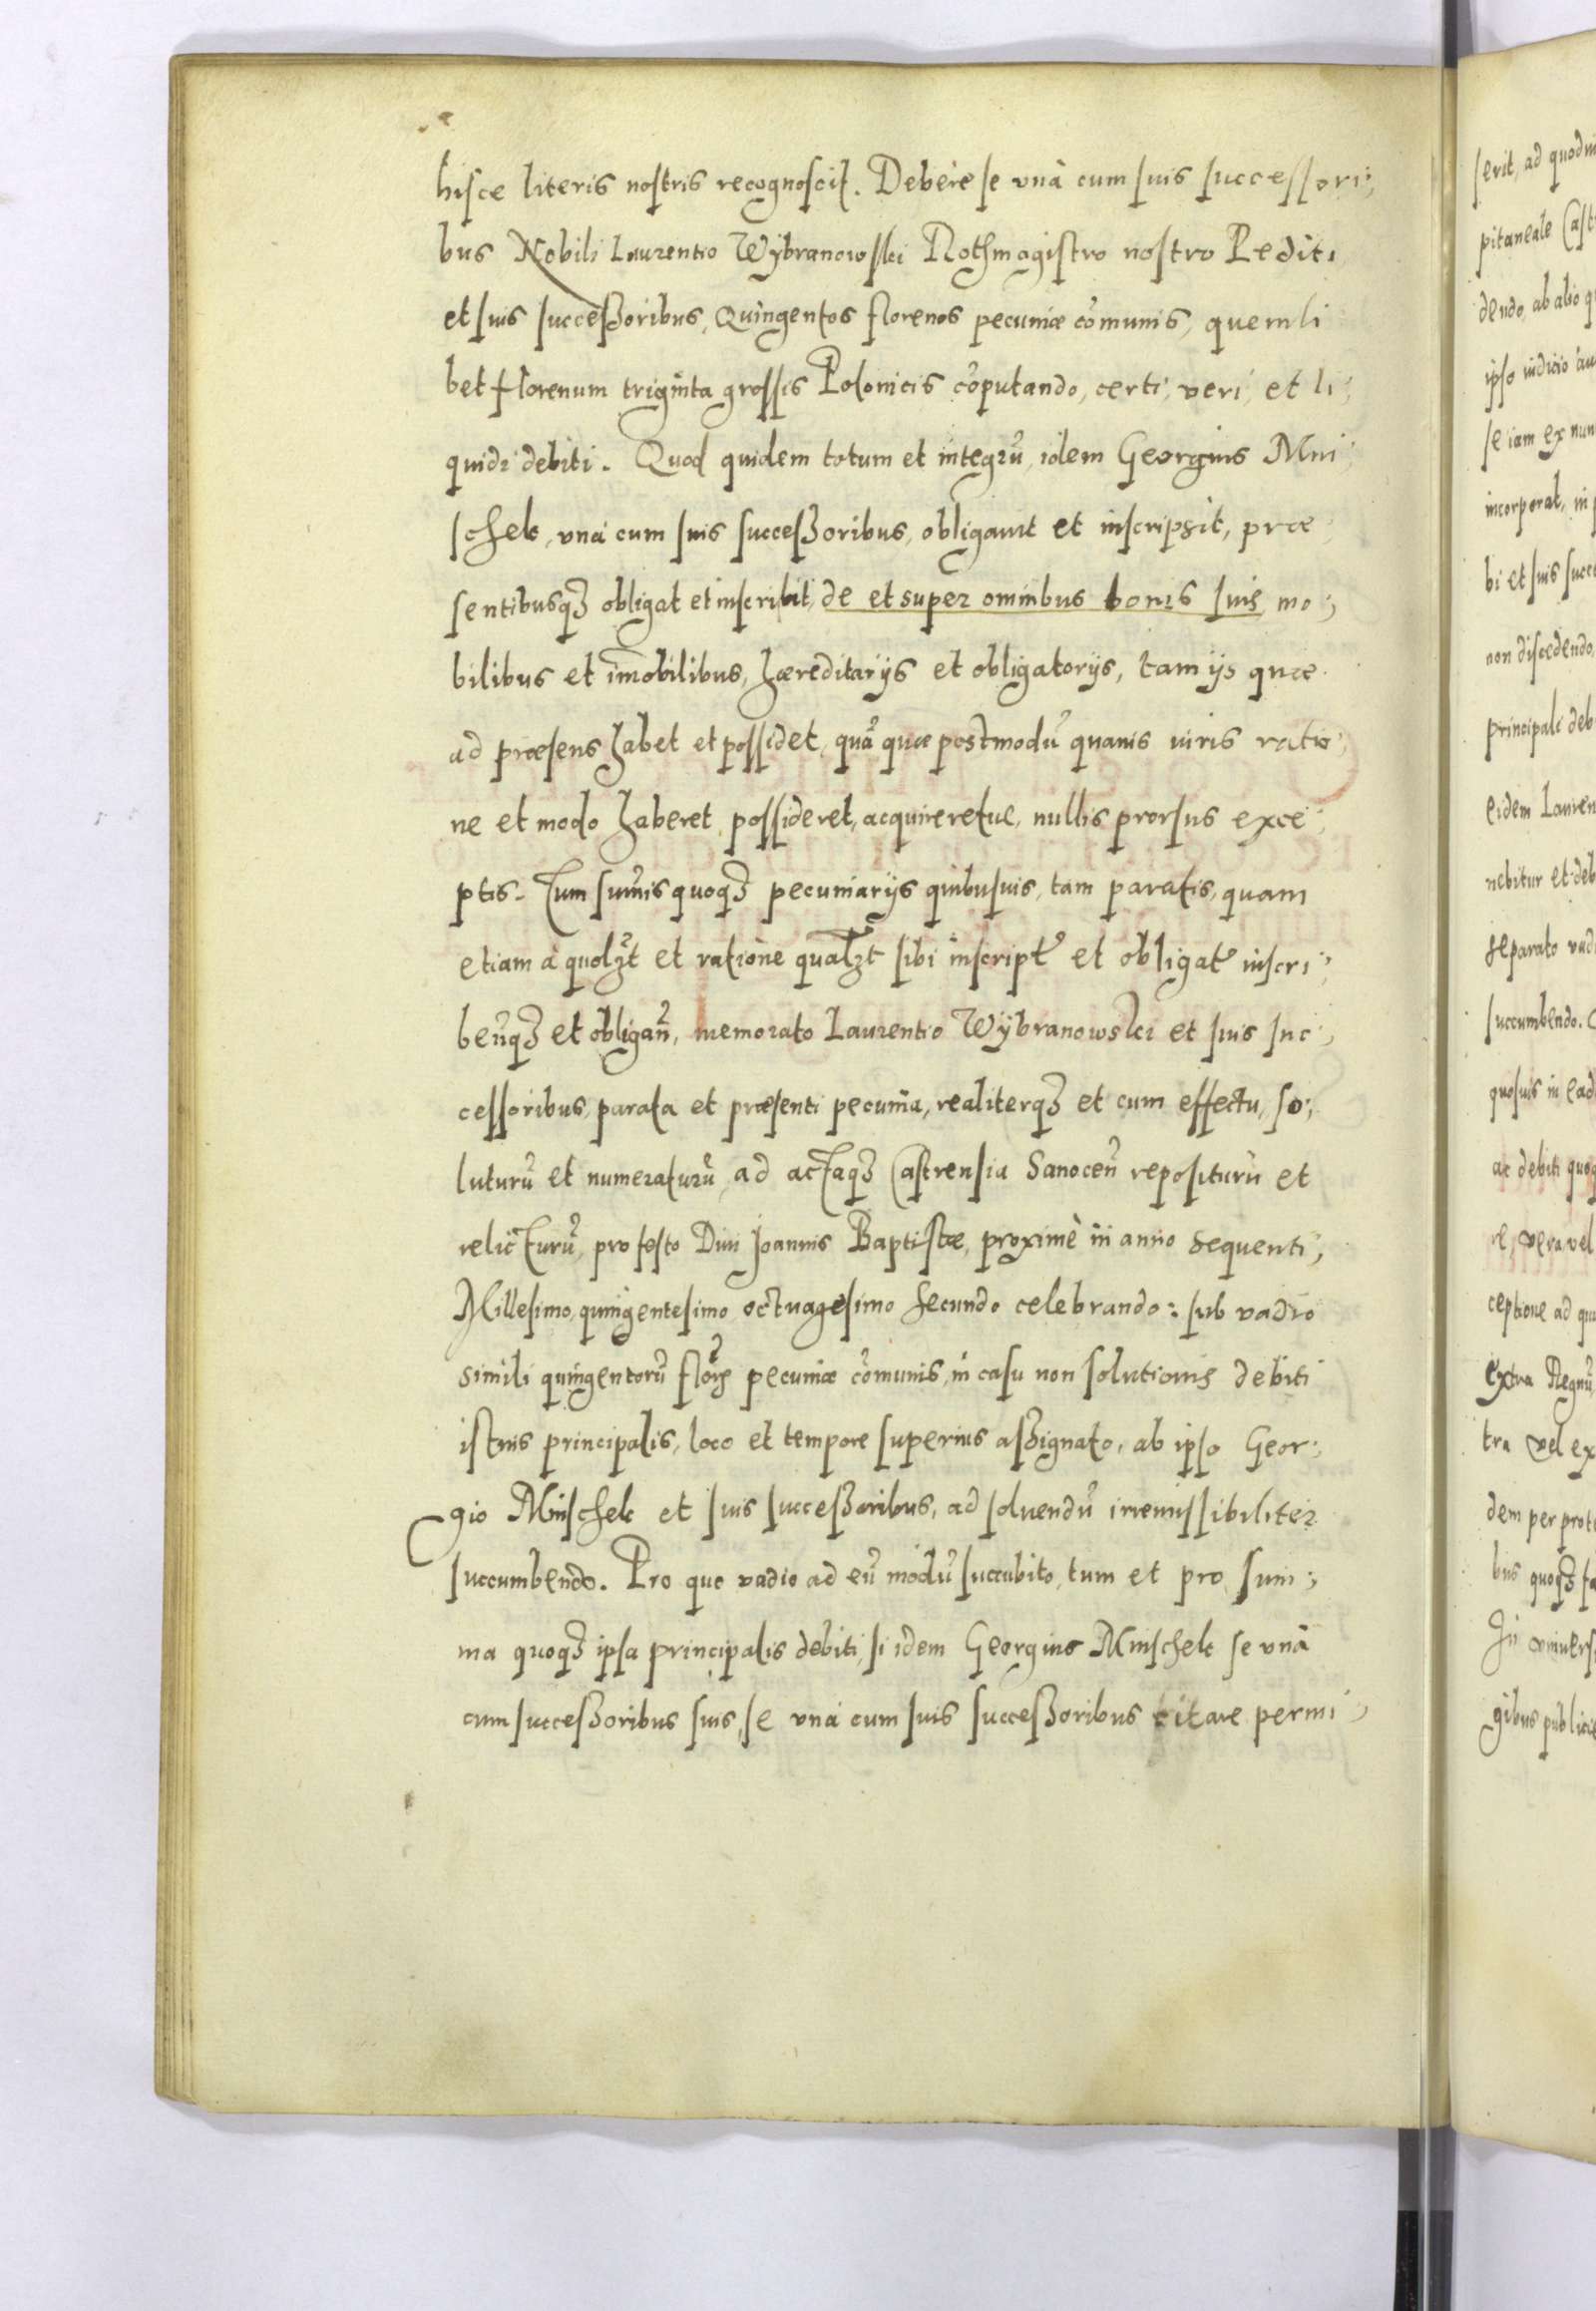 hisce literis nostris recognoscit. Debere se vnà cum suis successori;
bus Nobili Laurentio Wÿbranowski Rothmagistro nostro Pediti
et suis successoribus, Quingentos florenos pecuniæ cõmunis, quemli
bet florenum triginta grossis Polonicis cõputando, certi, veri, et li;
quidi debiti. Quod quidem totum et integrũ, idem Georgius Mni
schek, vnà cum suis successoribus, obligauit et inscripsit, præ
sentibusqʒ obligat et inscribit, de et super omnibus bonis suis mo;
bilibus et im̃obilibus, hæreditarÿs et obligatorÿs, tam ÿs quæ
ad præsens habet et possidet, quã quæ postmodũ quauis iuris ratio
ne et modo haberet, possideret, acquireretue, nullis prorsus exce
ptis. Tum sum̃is quoqʒ pecuniarÿs quibusuis, tam paratis, quam
etiam à quolʒt et ratione qualʒt sibi inscript̃ et obligat̃ inscri;
beñqʒ et obligañ, memorato Laurentio Wÿbranowski et suis suc;
cessoribus, parata et præsenti pecunia, realiterqʒ et cum effectu, so;
luturũ et numeraturũ, ad actaqʒ Castrensia Sanoceñ repositurũ et
relicturũ, pro festo Diui Joannis Baptistæ, proximè in anno sequenti,
Millesimo, quingentesimo octuagesimo secundo celebrando: sub vadio
simili quingentorũ flor̃ pecuniæ cõmunis, in casu non solutionis debiti
istius principalis, loco et tempore superius assignato, ab ipso Geor;
gio Mnischek et suis successoribus, ad soluendũ irremissibiliter
succumbendo. Pro quo vadio ad eũ modũ succubito, tum et pro sum;
ma quoqʒ ipsa principalis debiti, si idem Georgius Mnischek se vnà
cum successoribus suis, se vnà cum suis successoribus citare permi;
serit, ad
pitaneale
dendo, ab alio
ipso iudicio
se iam ex nun
incorporat, in
bi et suis succe
non discedendo,
principali deb
eidem Lauren
nebitur et deb
separato vad
succumbendo.
quosuis in ead
ac debiti quoq
re, vera vel
ceptione ad qu
extra Regnũ
tra vel ex
dem per prot
bus quoqʒ fa
In vniuers
gibus publicis